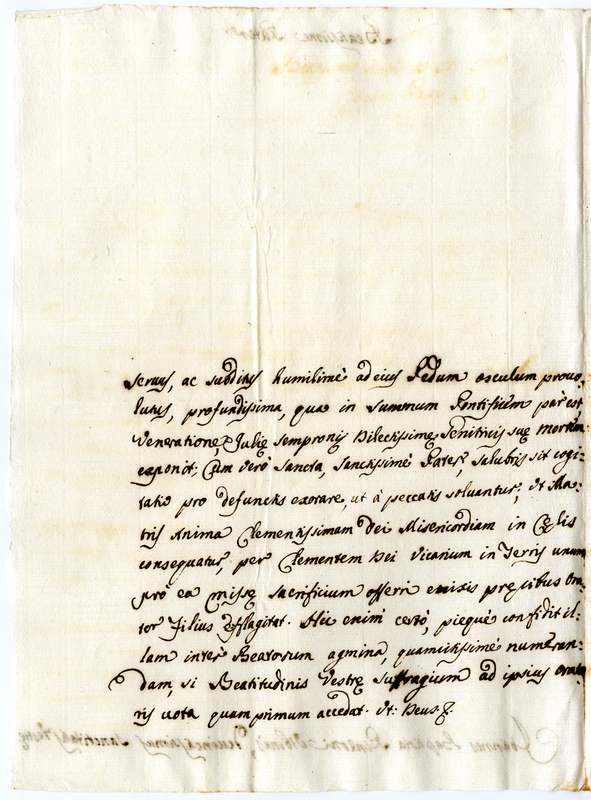 servus, ac subditus humilimè ad eius Pedum osculum provo-
lutus, profundissima, qua in summum Pontificem par est,
Veneratione, Julię Sempronij Dilectissimę Genitricis suę mortem
exponit. Cum verò Sancta, Sanctissimè Pater, salubris sit cogi-
tatio pro defunctis exorare, ut à peccatis solvantur, Ut Ma-
tris Anima Clementissimam Dei Misericordiam in Cęlis
consequatur, per Clementem Dei Vicarium in Terris unum
pro ea Missę sacrificium offerri enixis pręcibus Ora-
tor Filius efflagitat. Hic enim certò, pieque confidit il-
lam inter Beatorum agmina, quamcitissimè numeran-
dam, si Beatitudinis Vestrę suffragium ad ipsius Orato
ris vota quamprimum accedat. Ut Deus &.